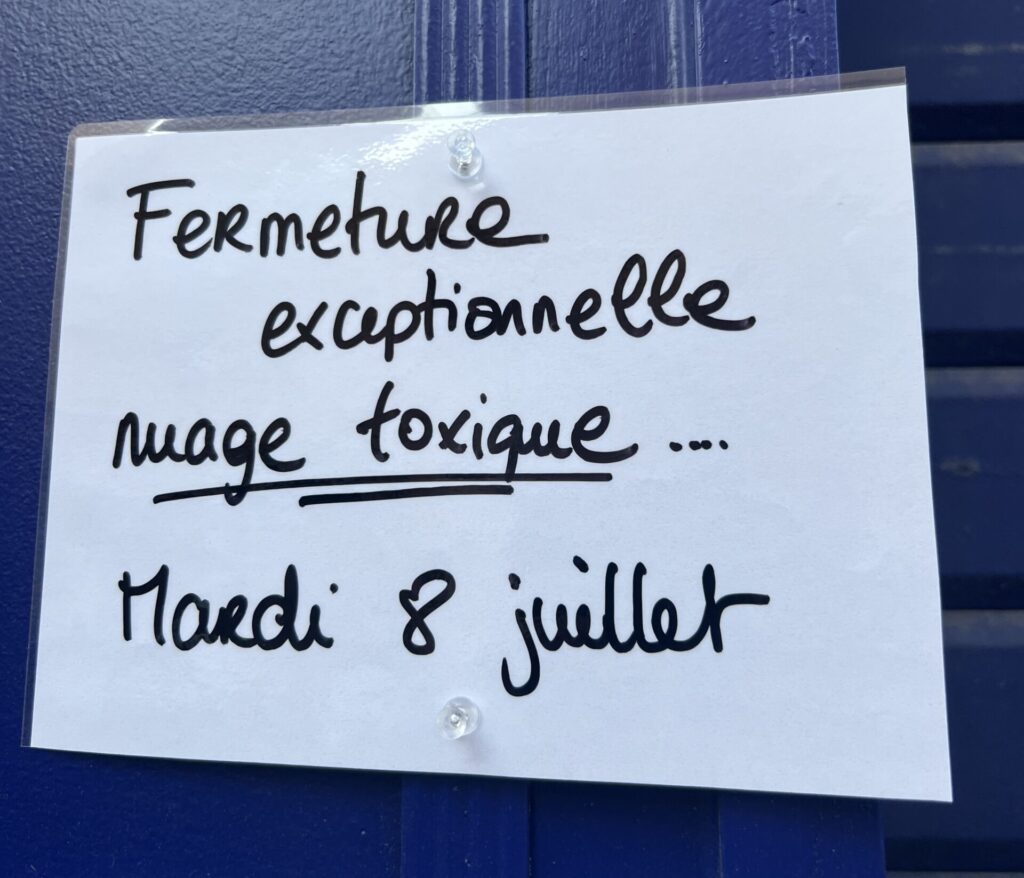 Fermeture
exceptionnelle
nuage toxique ....
Mardi 8 juillet